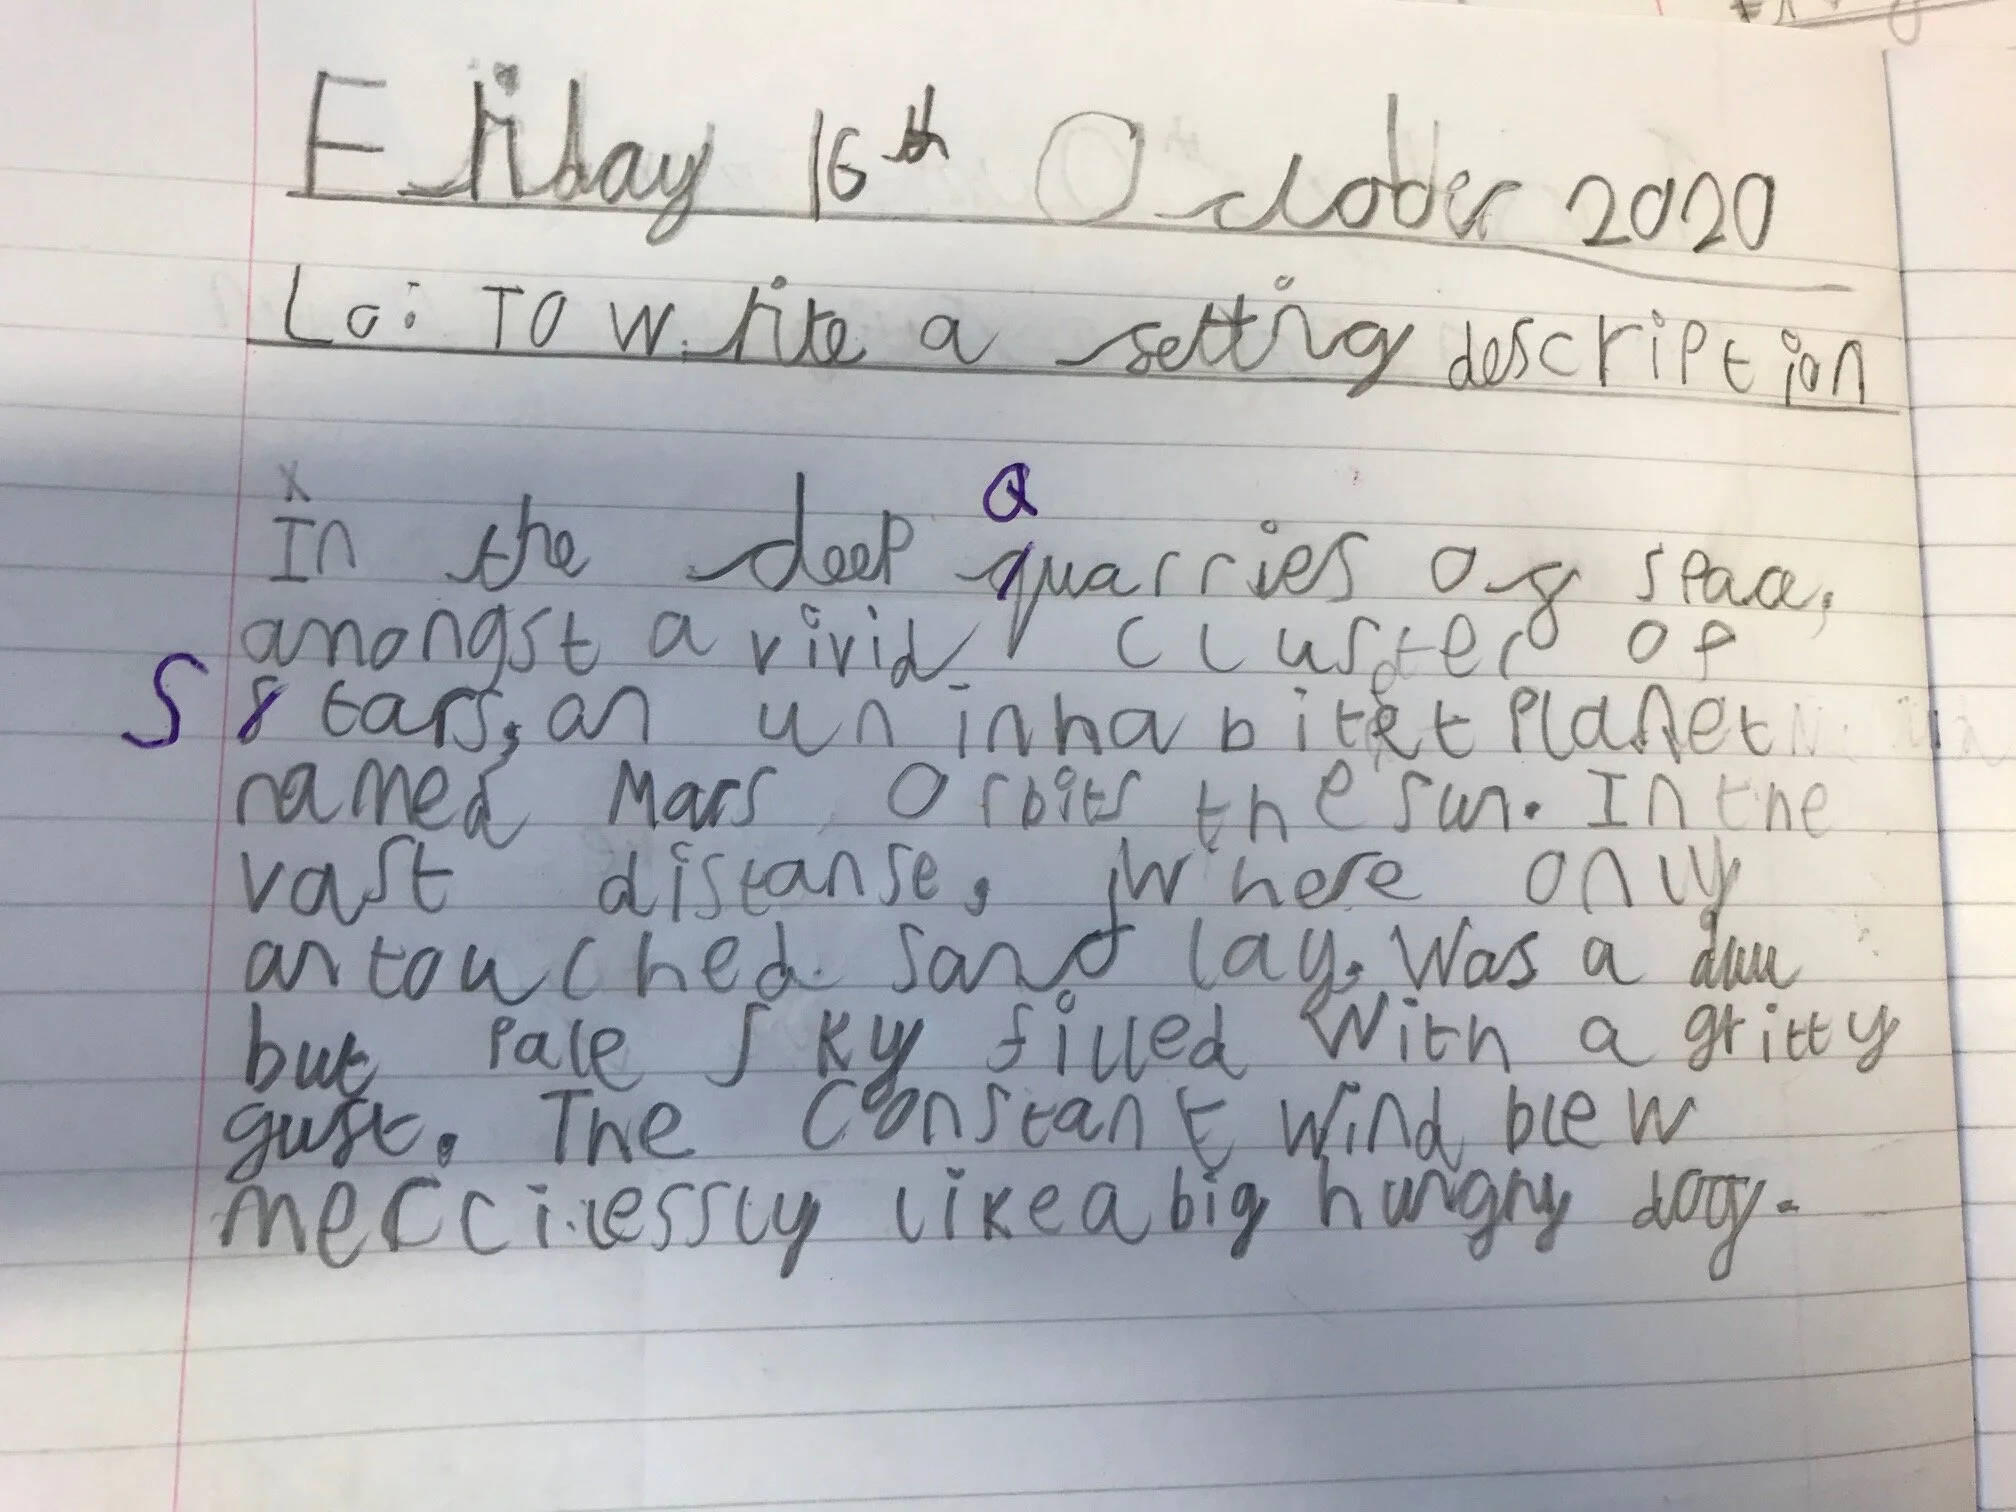 Friday 16th October 2020
Lo: To write a setting description
x
Q
In the deep quarries of space,
amongst a vivid cluster of
S stars, an uninhabitet planet
named Mars orbits the sun. In the
vast distanse, where only
antouched sand lay. Was a dull
but pale sky filled with a gritty
gust. The constant wind blew
merccilessly like a big hungry dog.